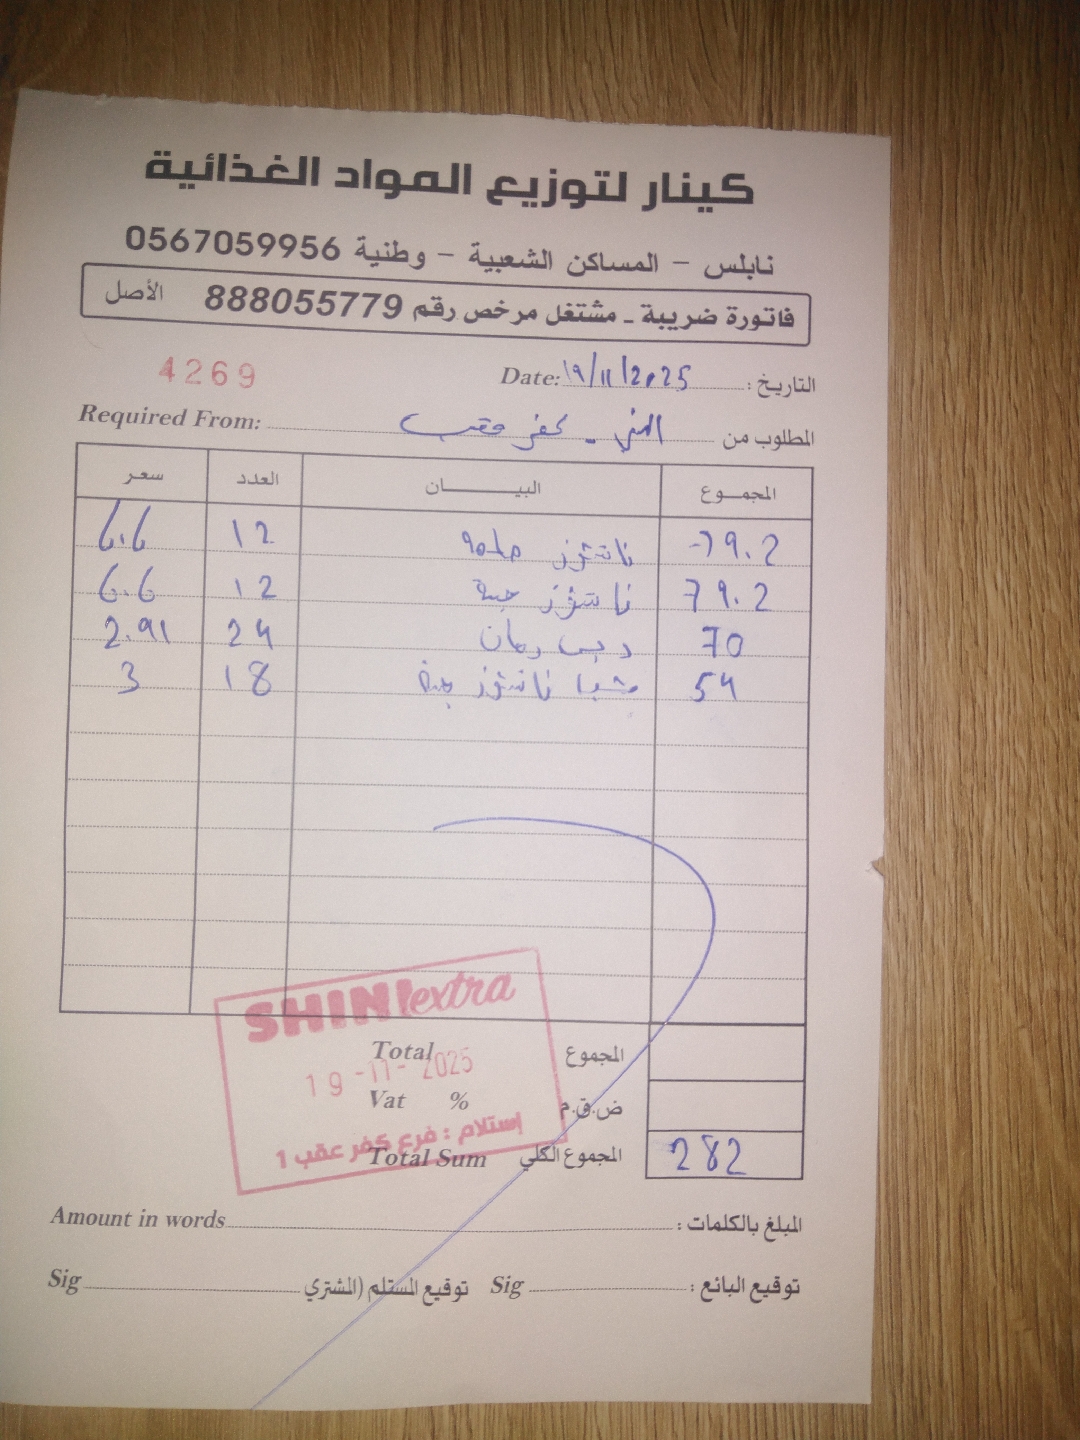 كينار لتوزيع المواد الغذائية
نابلس - المساكن الشعبية - وطنية 0567059956
فاتورة ضريبة - مشتغل مرخص رقم 888055779 الأصل
4269
التاريخ: 19/11/2025 Date:
المطلوب من - كفر عقب Required From:
المجموع البيـــــان العدد سعر
79.2 ناتشوز 12 6.6
79.2 ناتشوز جبنة 12 6.6
70 دبس رمان 24 2.91
54 ناتشوز جبنة 18 3
SHINI extra
المجموع Total
19-11-2025
ض.ق.م Vat %
إستلام : فرع كفر عقب 1
282 المجموع الكلي Total Sum
المبلغ بالكلمات : Amount in words
توقيع البائع : Sig توقيع المستلم (المشتري Sig